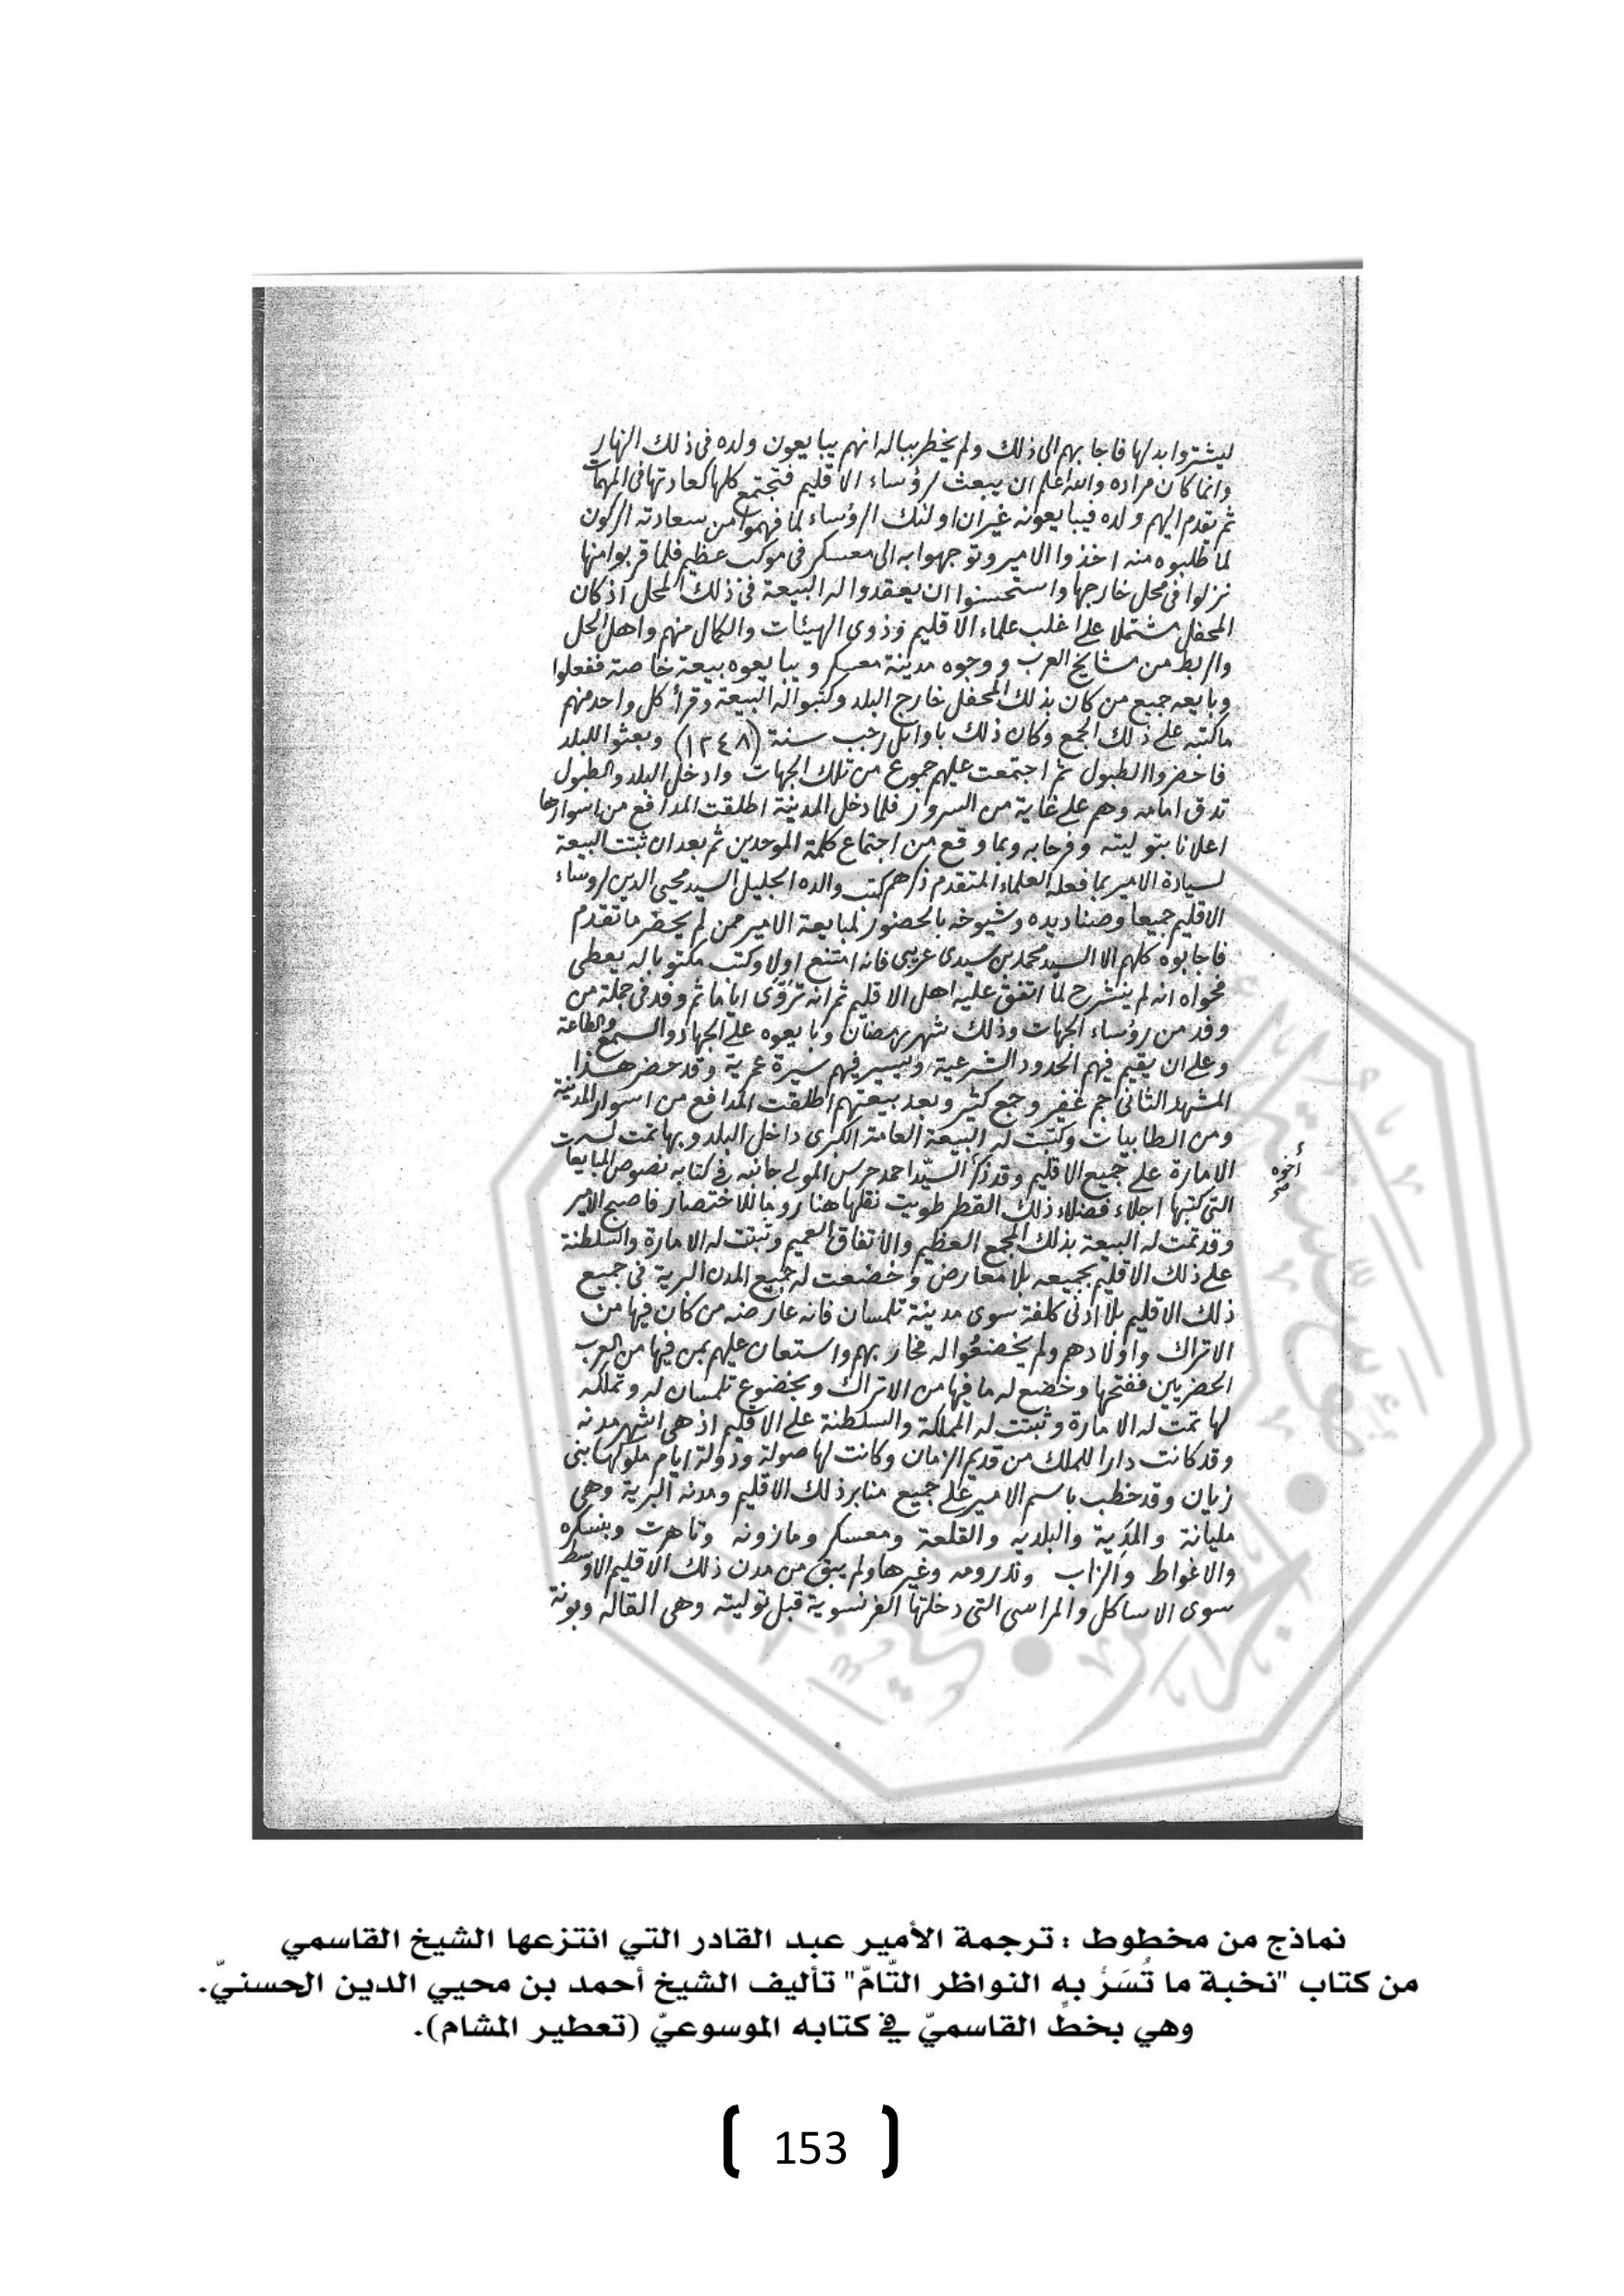 ليشتروا بدلها فاجابهم الى ذلك ولم يخطر بباله انهم يبايعون ولده فى ذلك النهار
وانما كان مراده والله اعلم ان يبعث لرؤساء الاقليم فتجتمع كلها كعادتها فى المهمات
ثم يقدم اليهم ولده فيبايعونه غير ان اولئك الرؤساء لما فهموا من سعادته الركون
لما طلبوه منه اخذوا الامير وتوجهوا به الى معسكر فى موكب عظيم فلما قربوا منها
نزلوا فى محل خارجها واستحسنوا ان يعقدوا له البيعة فى ذلك المحل اذ كان
المحفل مشتملا على اغلب علماء الاقليم وذوى الهيئات والكمال منهم واهل الحل
والربط من مشايخ العرب ووجوه مدينة معسكر ويبايعوه بيعة خاصة ففعلوا
وبايعه جميع من كان بذلك المحفل خارج البلد وكتبوا له البيعة وقرأ كل واحد منهم
ماكتبه على ذلك الجمع وكان ذلك باوايل رجب سنة (١٢٤٨) وبعثوا للبلد
فاحضروا الطبول ثم اجتمعت عليهم جموع من تلك الجهات وادخل البلد والطبول
تدق امامه وهم على غاية من السرور فلما دخل المدينة اطلقت المدافع من اسوارها
اعلانا بتوليته وفرحا به وبما وقع من اجتماع كلمة الموحدين ثم بعد ان ثبتت البيعة
لسيادة الامير بما فعله العلماء المتقدم ذكرهم كتب والده الجليل السيد محيى الدين لروساء
الاقليم جميعا وصناديده وشيوخه بالحضور لمبايعة الامير ممن لم يحضر ما تقدم
فاجابوه كلهم الا السيد محمد بن سيدى عريبى فانه امتنع اولا وكتب مكتوبا له يعطى
فحواه انه لم ينشرح لما اتفق عليه اهل الاقليم ثم انه تروّى اياما ثم وفد فى جملة من
وفد من رؤساء الجهات وذلك شهر رمضان وبايعوه على الجهاد والسمع والطاعة
وعلى ان يقيم فيهم الحدود الشرعية ويسير فيهم سيرة عمرية وقد حضر هذا
المشهد الثانى جم غفير وجمع كثير وبعد بيعتهم اطلقت المدافع من اسوار المدينة
ومن الطابيات وكتبت له البيعة العامة الكبرى داخل البلد وبها تمت له
الامارة على جميع الاقليم وقد ذكر السيّد احمد المولى جانبه فى كتابه نصوص المبايعات
أخوه
التى كتبها اجلاء فضلاء ذلك القطر طويت نقلها هنا روما للاختصار فاصبح الامير
وقد تمت له البيعة بذلك المجمع العظيم والاتفاق العميم وثبتت له الامارة والسلطنة
على ذلك الاقليم بجميعه بلا معارض وخضعت له جميع المدن البرية فى جميع
ذلك الاقليم بلا ادنى كلفة سوى مدينة تلمسان فانه عارضه من كان فيها من
الاتراك واولادهم ولم يخضعوا له فحاربهم واستعان عليهم بمن فيها من العرب
الحضريين ففتحها وخضع له ما فيها من الاتراك وبخضوع تلمسان له وتملكه
لها تمت له الامارة وثبتت له المملكة والسلطنة على الاقليم اذ هى اشهر مدنه
وقد كانت دارا للملك من قديم الزمان وكانت لها صولة ودولة ايام ملوكها بنى
زيان وقد خطب باسم الامير على جميع منابر ذلك الاقليم ومدنه البرية وهى
مليانة والمدية والبلديه والقلعة ومعسكر ومازونه وتاهرت وبسكره
والاغواط والزاب وندرومه وغيرها ولم يبق من مدن ذلك الاقليم الاوسط
سوى الاساكل والمراسى التى دخلتها الفرنسوية قبل توليته وهى القاله وبونة
نماذج من مخطوط : ترجمة الأمير عبد القادر التي انتزعها الشيخ القاسمي
من كتاب "نخبة ما تُسَرُّ به النواظر التّامّ" تأليف الشيخ أحمد بن محيي الدين الحسنيّ.
وهي بخطّ القاسميّ في كتابه الموسوعيّ (تعطير المشام).
153